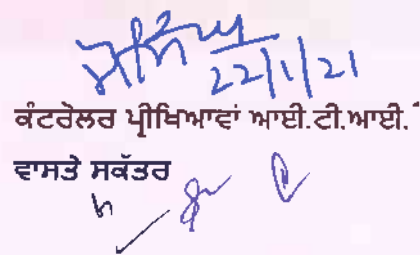 22/1/21
ਕੰਟਰੋਲਰ ਪ੍ਰੀਖਿਆਵਾਂ ਆਈ.ਟੀ.ਆਈ.
ਵਾਸਤੇ ਸਕੱਤਰ